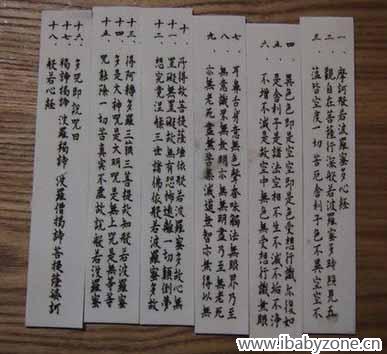 一、摩訶般若波羅蜜多心經
二、觀自在菩薩行深般若波羅蜜多時照見五
三、蘊皆空度一切苦厄舍利子色不異空空不
四、異色色即是空空即是色受想行識亦復如
五、是舍利子是諸法空相不生不滅不垢不淨
六、不增不減是故空中無色無受想行識無眼
七、耳鼻舌身意無色聲香味觸法無眼界乃至
八、無意識界無無明亦無無明盡乃至無老死
九、亦無老死盡無苦集滅道無智亦無得以無
十、所得故菩提薩埵依般若波羅蜜多故心無
十一、罣礙無罣礙故無有恐怖遠離一切顛倒夢
十二、想究竟涅槃三世諸佛依般若波羅蜜多故
十三、得阿耨多羅三藐三菩提故知般若波羅蜜
十四、多是大神咒是大明咒是無上咒是無等等
十五、咒能除一切苦真實不虛故說般若波羅蜜
十六、多咒即說咒曰
十七、揭諦揭諦 波羅揭諦 波羅僧揭諦菩提薩婆訶
十八、般若心經
www.ibabyzone.cn